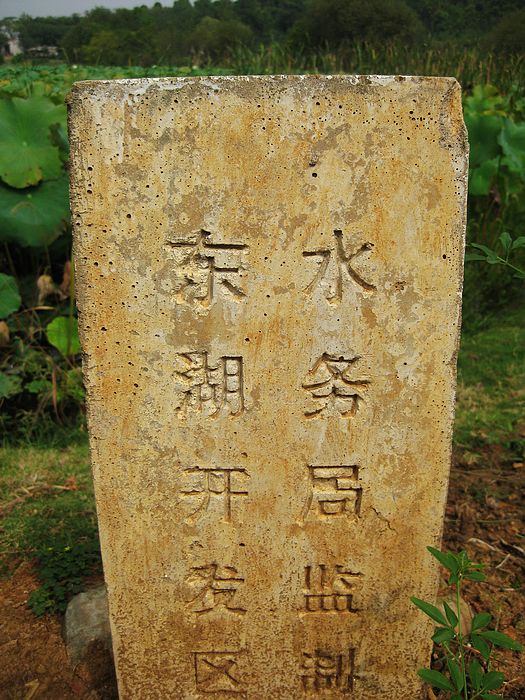 东湖开发区
水务局监制